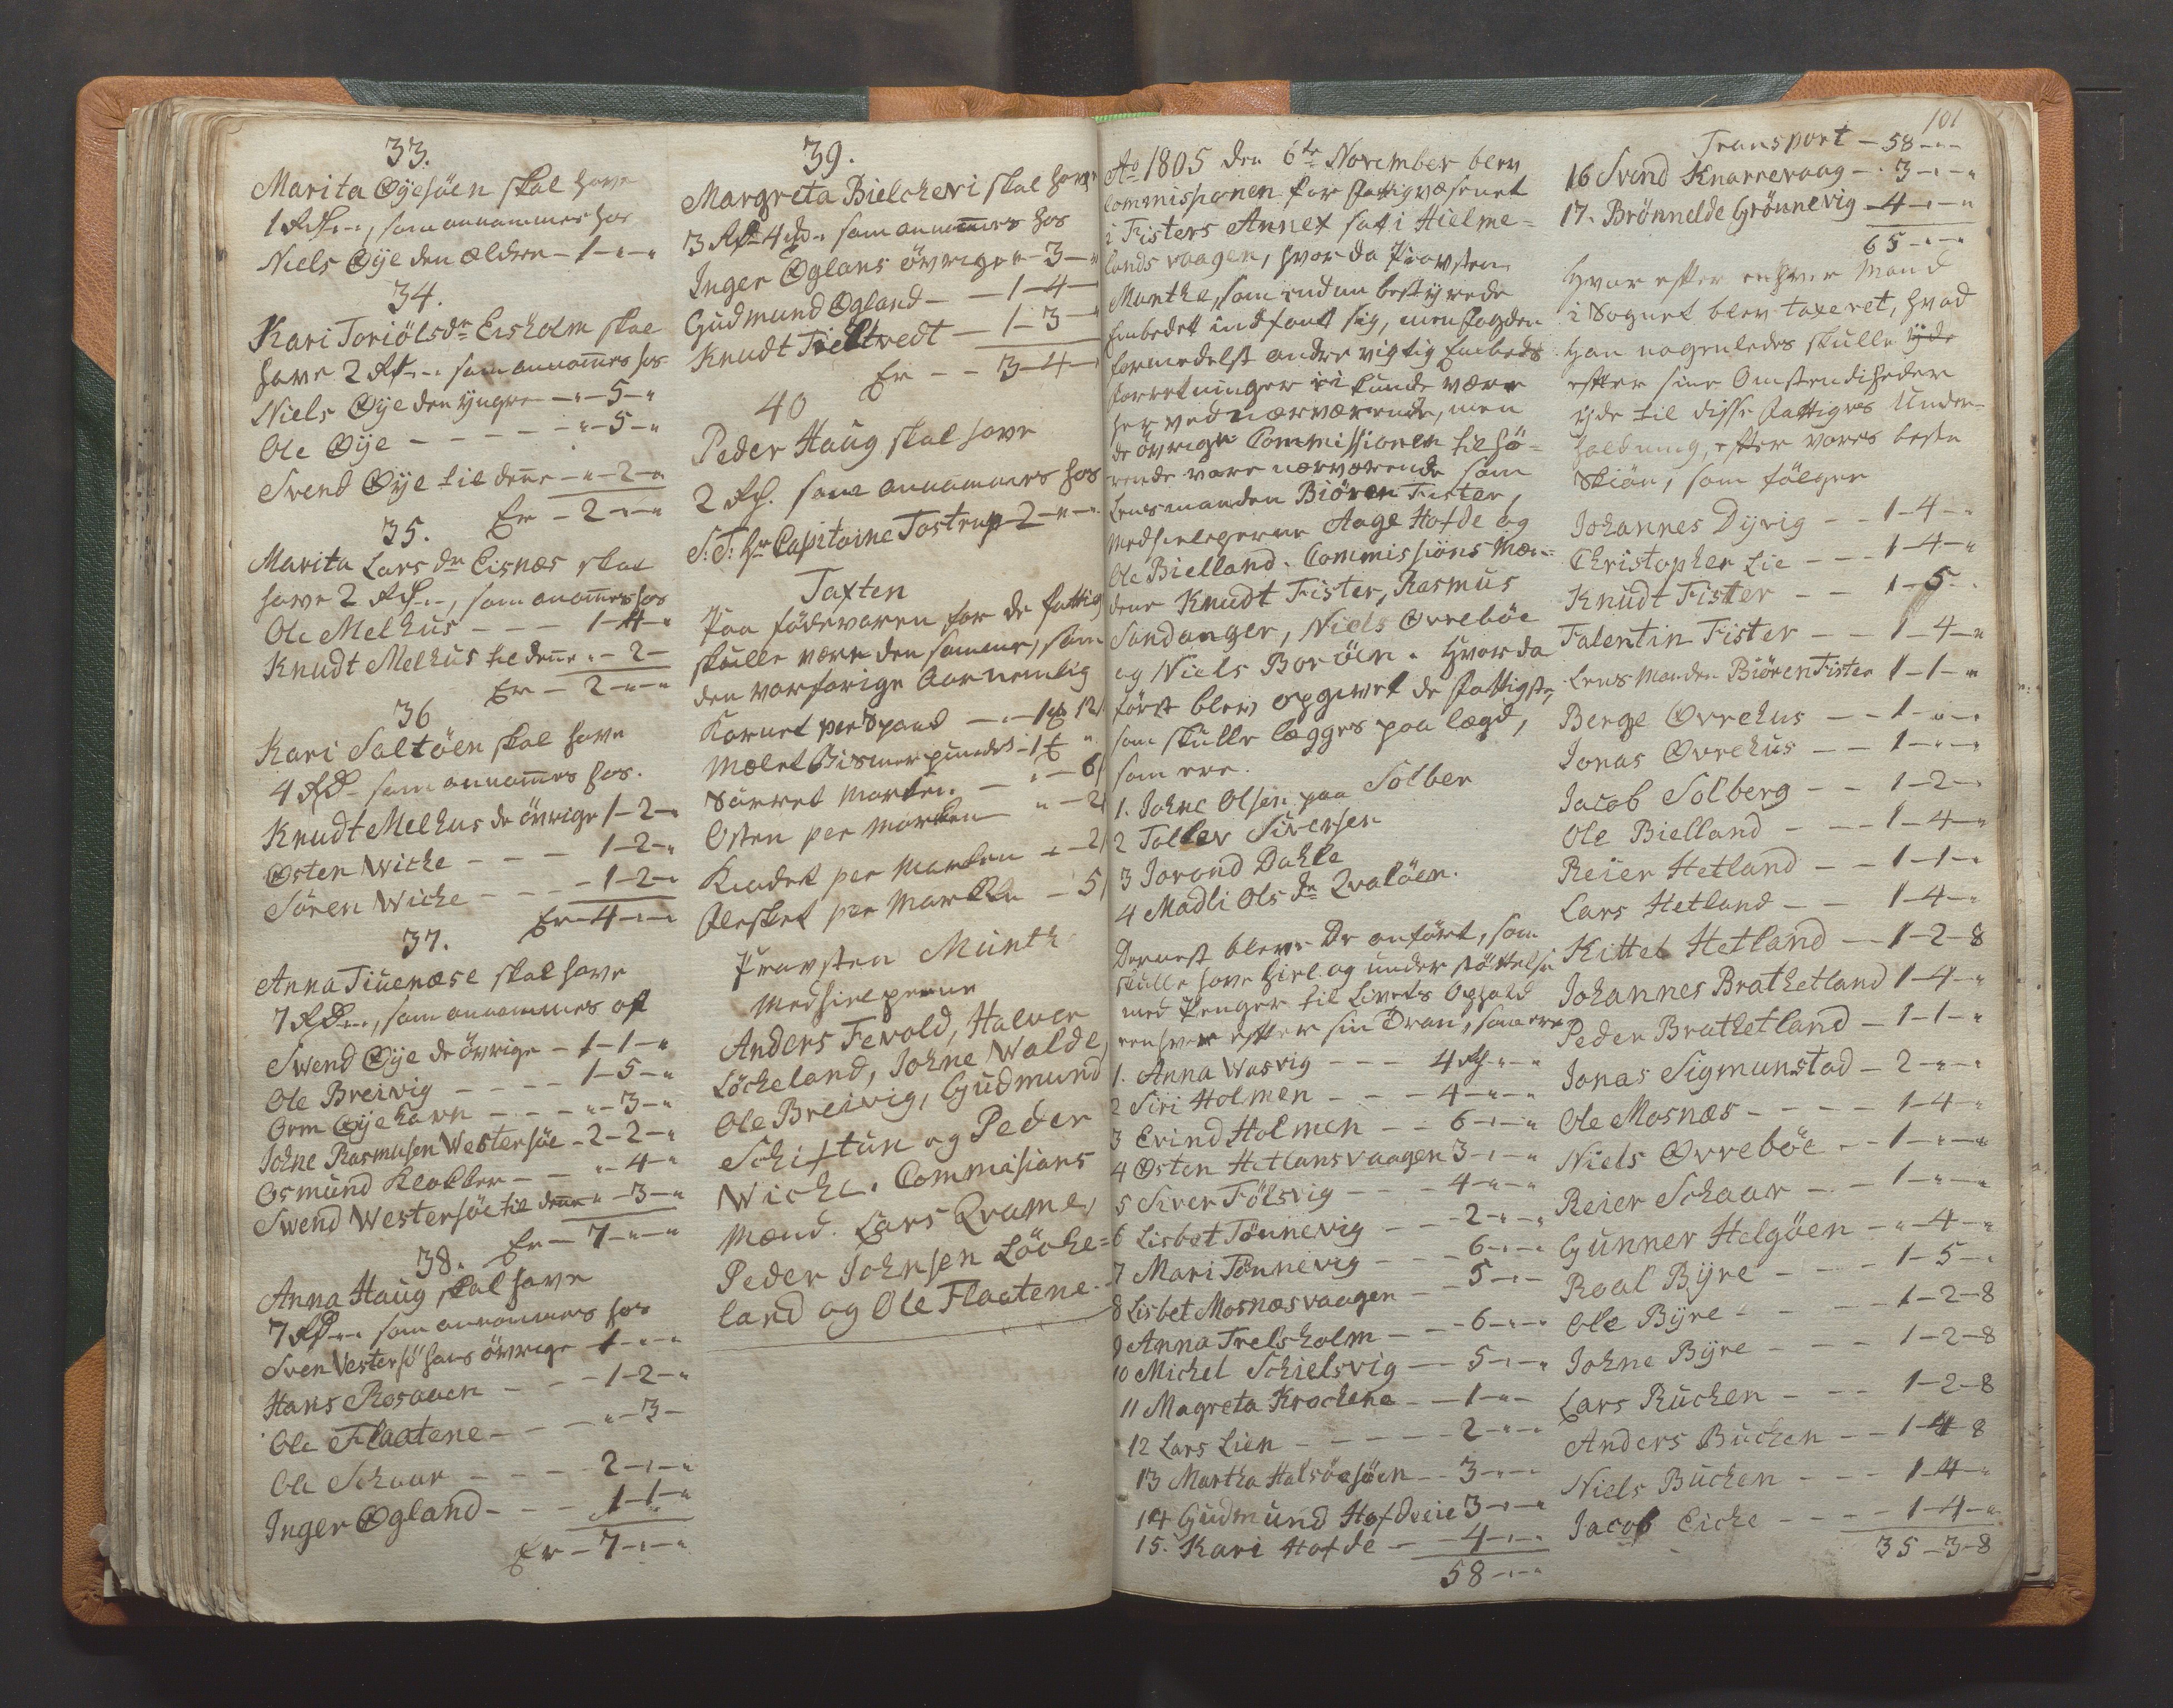 33.
Marita Øyesöen skal have
1 Rd „ „, som annammes hos
Niels Øye den ældre – 1 – „ – „
34.
Kari Toriölsdr Eisholm skal
have 2 Rd „ „ som annames hos
Niels Øye den yngre – „ – 5 – „
Ole Øye – – – – – „ – 5 – „
Svend Øye til dene – „ – 2 – „
Er – 2 – „ – „
35.
Marita Larsdr Eisnæs skal
have 2 Rd „ „, som anames hos
Ole Melhus – – – 1 – 4 – „
Knudt Melhus til dene „ – 2 –
Er – 2 – „ – „
36
Kari Saltöen skal have
4 Rd – som annames hos.
Knudt Melhus de övrige 1 – 2 – „
Østen Wicke – – – 1 – 2 – „
Sören Wicke – – – – 1 – 2 – „
Er – 4 – „ – „
37.
Anna Tiuenæse skal have
7 Rd „ „, som annammes af
Svend Øye de övrige – 1 – 1 – „
Ole Breivig – – – – 1 – 5 – „
Orm Øyehavn – – – „ – 3 – „
Johne Rasmusen Westersöe – 2 – 2 – „
Osmund Klokker – – „ – 4 – „
Swend Westersöe til dene „ – 3 – „
Er – 7 – „ – „
38.
Anna Haug skal have
7 Rd „ „ som annammes hos
Sven Vestersö hans övrige – 1 – „ – „
Hans Rosaaen – – – 1 – 2 – „
Ole Flaatene – – – „ – 3 –
Ole Schaar – – – – 2 – „ – „
Inger Øgland – – – 1 – 1 – „
Er – 7 – „ – „
39.
Margreta Bielcheri skal have
3 Rd 4 som annammes hos
Inger Øglans övrige „ – 3 – „
Gudmund Øgland – – 1 – 4 –
Knudt Tieltvedt – 1 – 3 – „
Er – – 3 – 4 –
40
Peder Haug skal have
2 Rd. som annammes hos
S: T: Hr Capitaine Tostrup 2 – „ – „
Taxten
Paa födevaren for de fattig
skulle være den samme, som
den varforige Aar nemlig
Kornet per Spand – – 1 12
Mælet Bismerpundet – 1 „
Smörret Marken – „ – 6
Osten per Marken „ – 2
Kiødet per Marken – „ – 2
Flesket per Marken – 5
Provsten Munth
Medhielperne
Anders Fevold, Halver
Löckeland, Johne Walde,
Ole Breivig, Gudmund
Schiftun og Peder
Wicke. Commisions
Mænd. Lars Qvame,
Peder Johnsen Löcke=
land og Ole Flaatene.
101
Ao 1805 den 6te November blev
Commissionen for Fattigvæsenet
i Fisters Annex sat i Hielme=
lands vaagen, hvor da Provsten
Munthe, som endnu bestyrede
Embedet indfant sig, men fogden
formedelst andre vigtig Embeds
forretninger ei kunde være
her ved nærværende, men
de övrige Commissionen tilhö=
rende vare nærværende som
Lensmanden Biören Fister,
Medhielperne Aage Hofde og
Ole Bielland. Commissions Mæn=
dene Knudt Fister, Rasmus
Sandanger, Niels Øvreböe
og Niels Boröen. Hvor da
først blev opgivet de Fattigste,
som skulle lægges paa lægd,
som ere.
1. Johne Olsen paa Solber
2 Tollev Siversen
3 Jorand Dahle
4 Madli Olsdr Qvalöen.
Dernest blev De anført, som
skulle have Hielp og understöttelse
med Penger til Livets Ophold
enhver efter sin Tran, som ere
1. Anna Wasvig – – – 4 Rd „ – „
2 Siri Holmen – – – 4 – „ – „
3 Evind Holmen – – 6 – „ – „
4 Østen Hetlansvaagen 3 – „ – „
5 Siver Fölsvig – – – 4 – „ – „
6 Lisbet Tönnevig – – – 2 – „ – „
7 Mari Tönnevig – – – 6 – „ – „
8 Lisbet Mosnæsvaagen – – 5 – „ –
9 Anna Trelsholm – – – 6 – „ – „
10 Michel Schielsvig – – 5 – „ – „
11 Magreta Krockene – – 1 – „ –
12 Lars Lien – – – – – 2 – „ – „
13 Martha Halsöesöen – – 3 – „ –
14 Gudmund Hofdeeie 3 – „ – „
15. Kari Hofde – – 4 – „ –
58 – „ – „
Transport – 58 – „ –
16 Svend Knarrevaag – 3 – „ – „
17. Brönnelde Grönnevig – 4 – „ – „
65 – „ – „
Hvor efter enhver Mand
i Sognet blev taxeret, hvad
han nogenledes skulle yde
efter sine Omstendiheder
yde til disse Fattiges Under=
holdning, efter vores beste
Skiön, som fölger
Johannes Dyvig – – 1 – 4 – „
Christopher Lie – – 1 – 4 – „
Knudt Fister – – 1 – 5 –
Falentin Fister – – 1 – 4 – „
Lens Manden Biören Fister 1 – 1 – „
Berge Øvrehus – – 1 – „ – „
Jonas Øvrehus – – 1 – „ – „
Jacob Solberg – – 1 – 2 – „
Ole Bielland – – – 1 – 4 – „
Reier Hetland – – 1 – 1 – „
Lars Hetland – – 1 – 4 – „
Kittel Hetland – – 1 – 2 – 8
Johannes Brathetland 1 – 4 – „
Peder Brathetland – 1 – 1 – „
Jonas Sigmunstad – 2 – „ – „
Ole Mosnæs – – – – 1 – 4 – „
Niels Øvreböe – – 1 – „ – „
Reier Schaar – – – 1 – „ – „
Gunner Helgöen – „ – 4 – „
Roal Byre – – – 1 – 5 – „
Ole Byre – – – – 1 – 2 – 8
Johne Byre – – – 1 – 2 – 8
Lars Buchen – – – 1 – 2 – 8
Anders Buchen – – 1 – 4 8
Niels Buchen – – – 1 – 4 – „
Jacob Eicke – – – – 1 – 4 – „
35 – 3 – 8